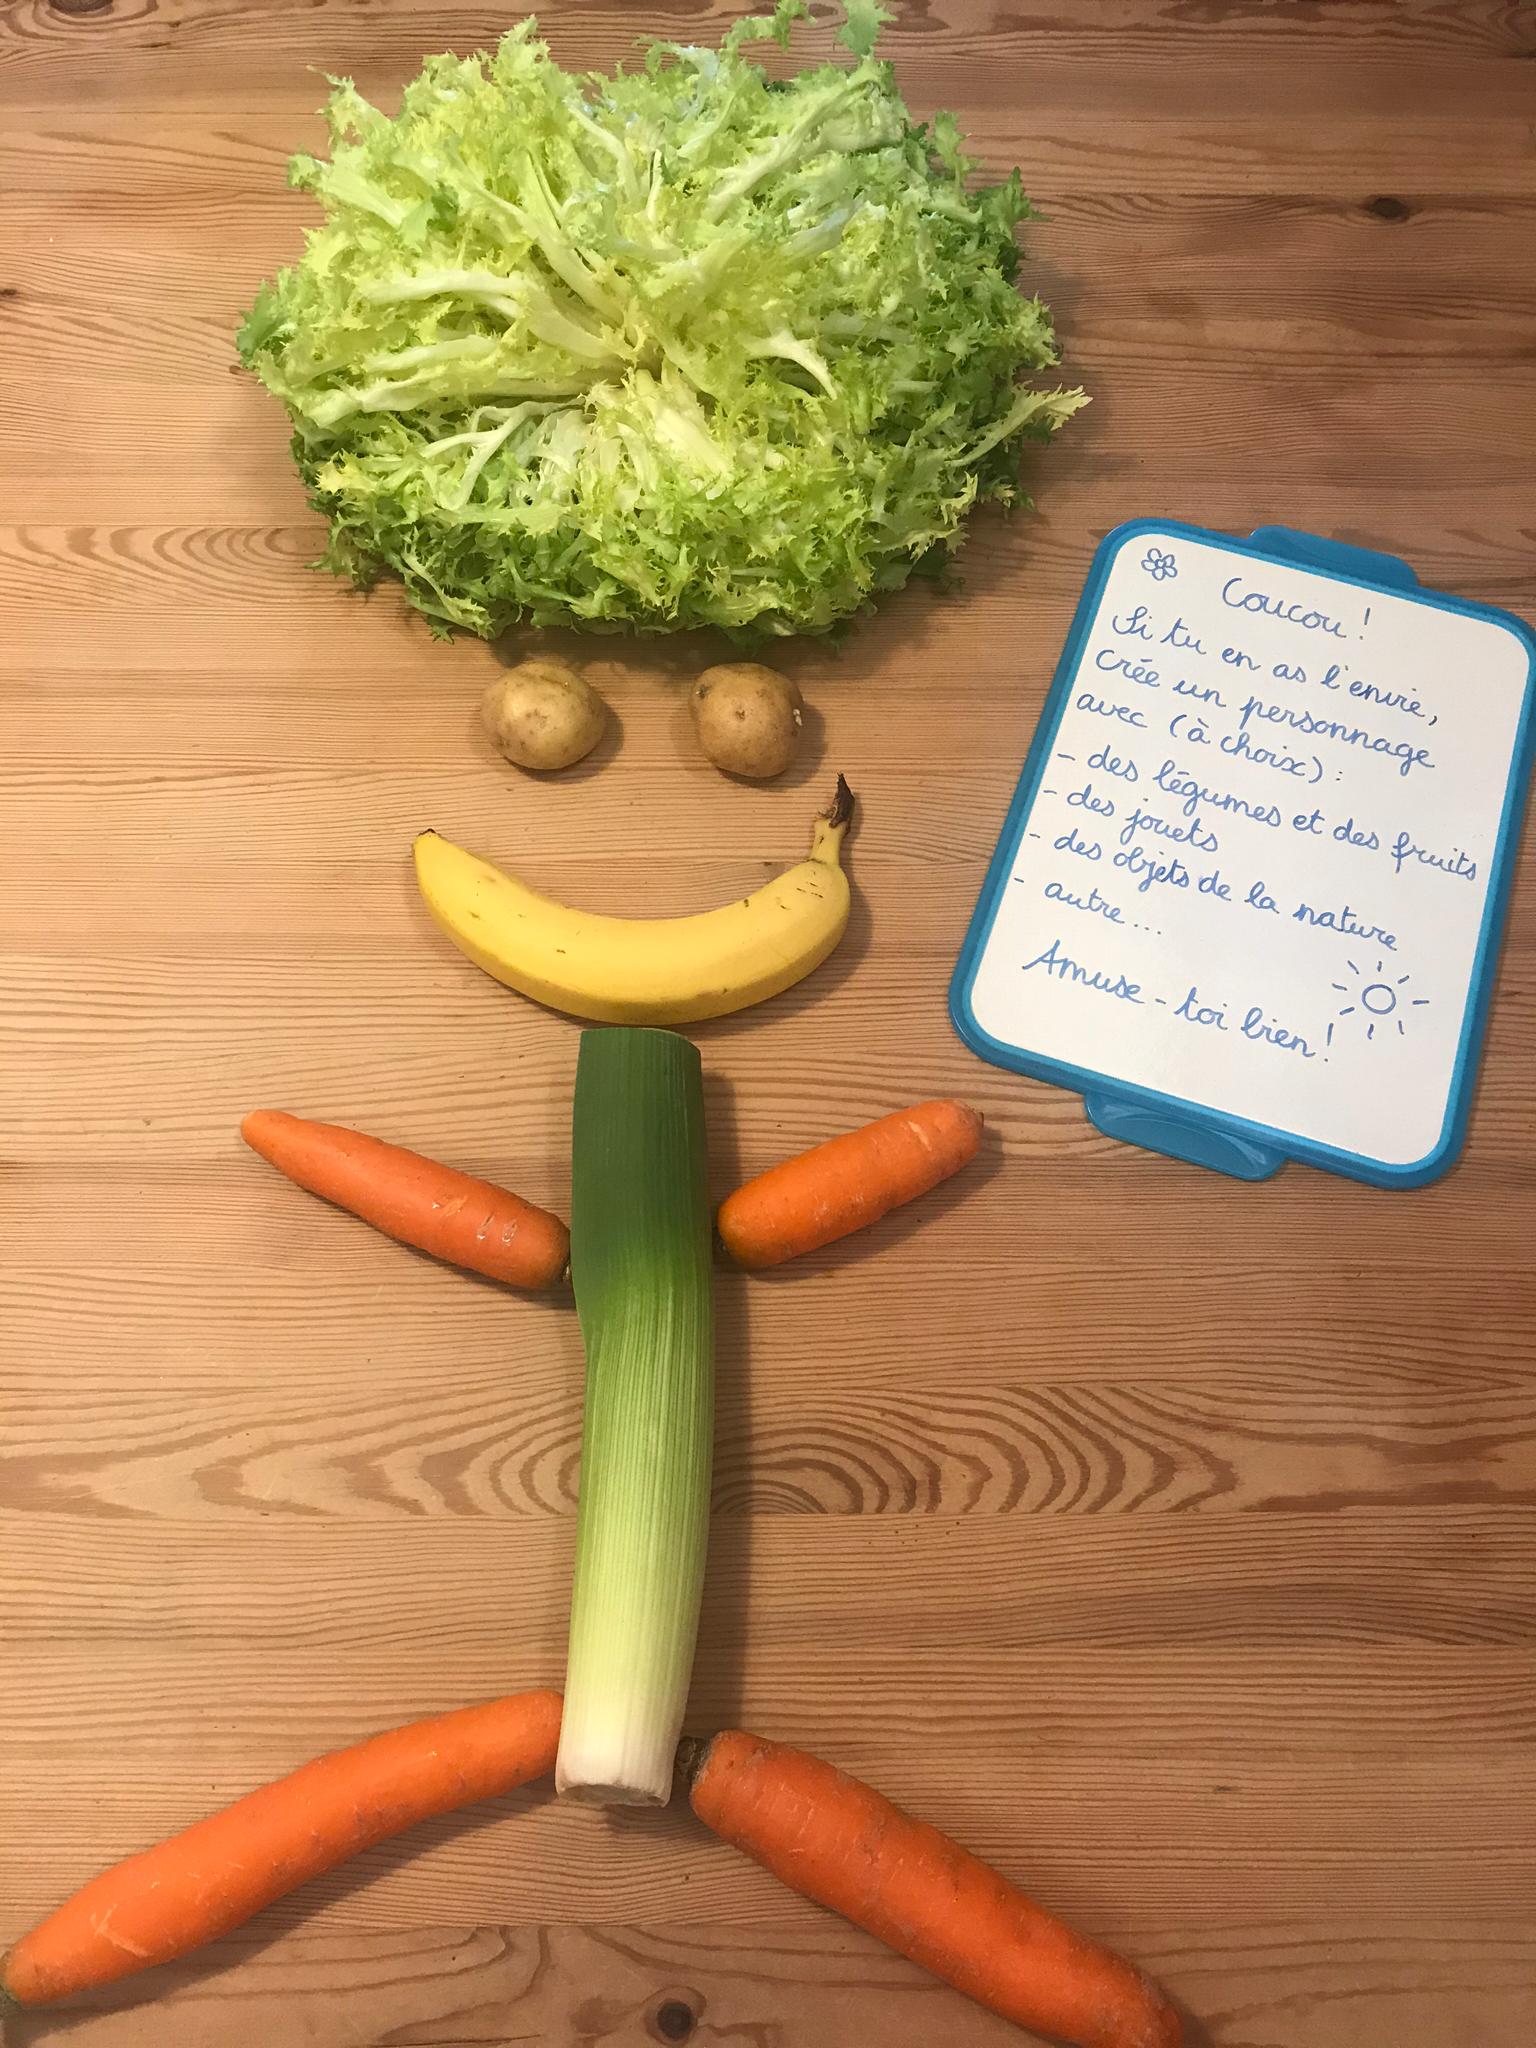 Coucou !
Si tu en as l'envie,
Crée un personnage
avec (à choix) :
- des légumes et des fruits
- des jouets
- des objets de la nature
- autre...
Amuse-toi bien !